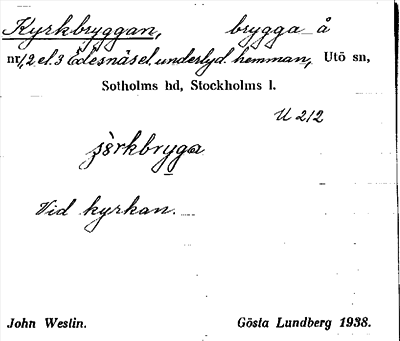 Kyrkbryggan, brygga å
nr 1, 2 el. 3 Edesnäs el. underlyd. hemman, Utö sn,
Sotholms hd, Stockholms l.
U 212
brygga
Vid kyrkan.
John Westin. Gösta Lundberg 1938.